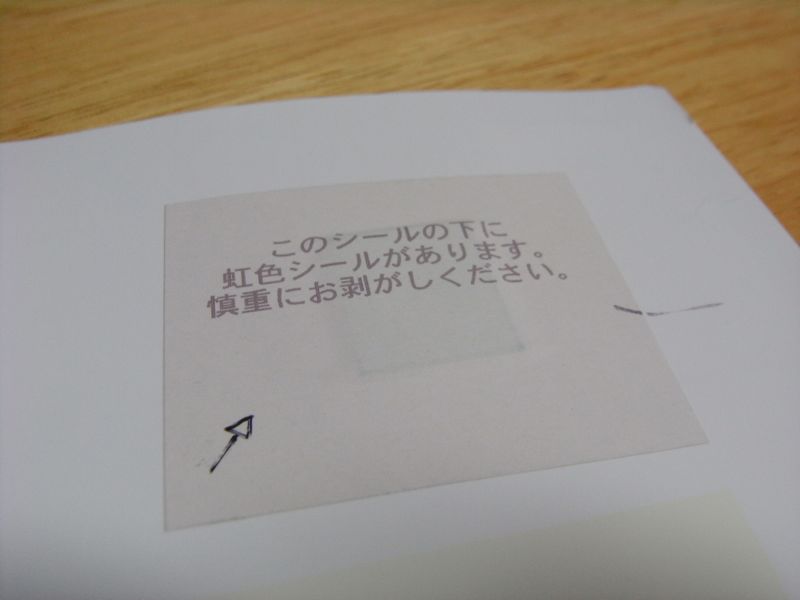 このシールの下に
虹色シールがあります。
慎重にお剥がしください。